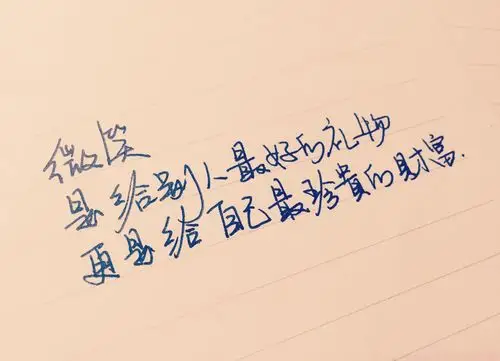 微笑
是给别人最好的礼物
更是给自己最珍贵的财富.